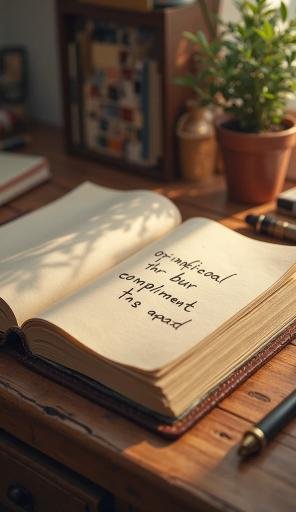 thr bur
compliment
Tns apad